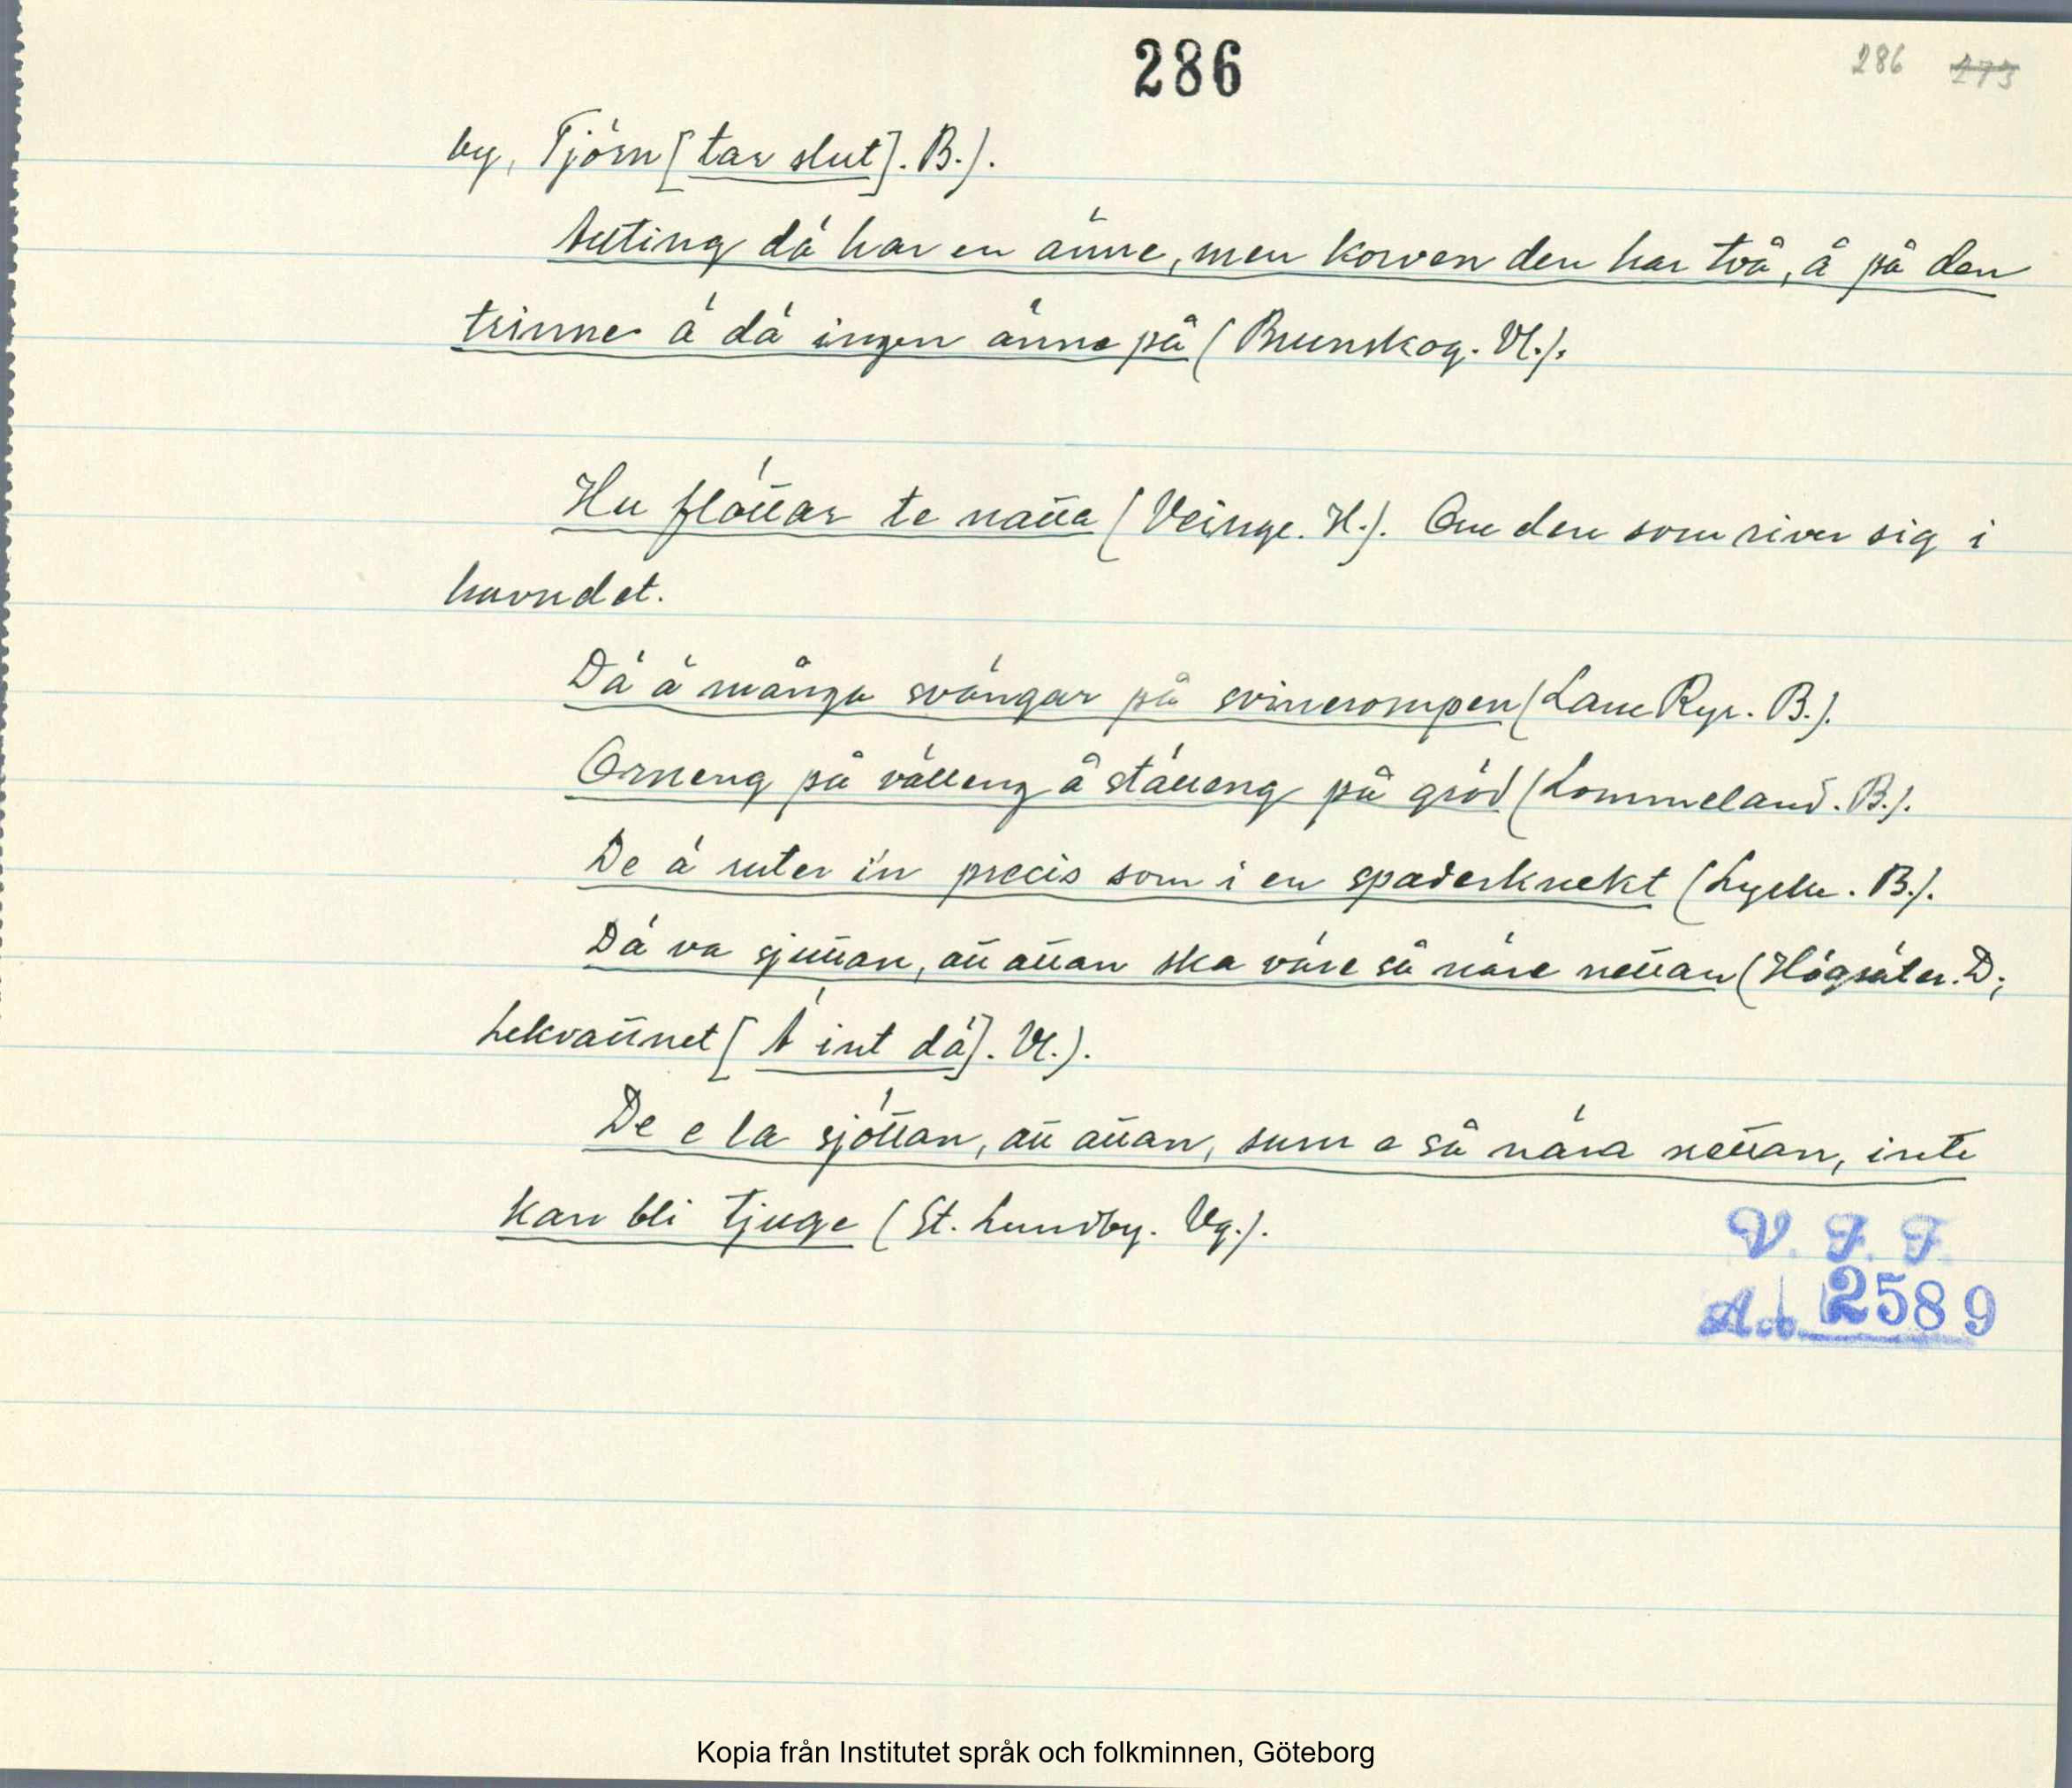 286
286 273
by, Tjörn [tar slut]. B.).
Allting dä har en änne, men korven den har två, å på den
trinne ä dä ingen änne på (Brunskog. Vl.).
Hu flöttar te natta (Veinge. H.). Om den som river sig i
huvudet.
Dä ä många svängar på svinerompen (Lane Ryr. B.).
Orneng på välleng å ställeng på gröd (Lommeland. B.).
De ä ruter in precis som i en spaderknekt (Lyse. B.).
Dä va sjuttan, att attan ska våre så näre nettan (Högsäter. D;
Lekvattnet [Ä int dä]. Vl.).
De e la sjöttan, att attan, sum e så nära nettan, inte
kan bli tjuge (St. Lundby. Vg.).
V. F. F.
A.b. 2589
Kopia från Institutet språk och folkminnen, Göteborg